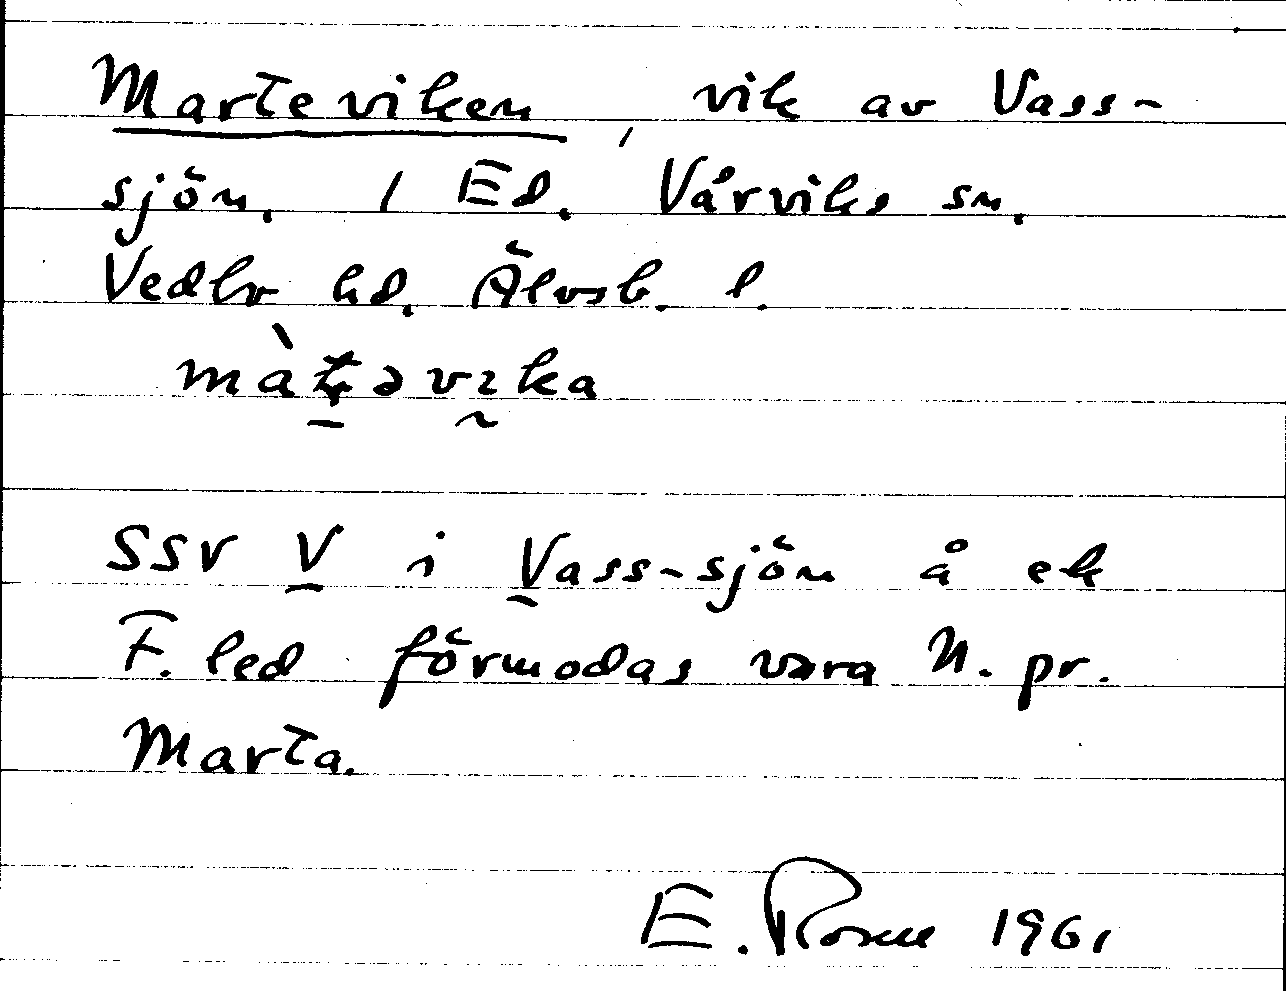 Marteviken, vik av Vass-
sjön. / Ed. Vårviks sn.
Vedbo hd. Älvsb. l.
màʈəvıka
SSV V i Vass-sjön å ek
F. led förmodas vara N. pr.
Marta.
E. 1961